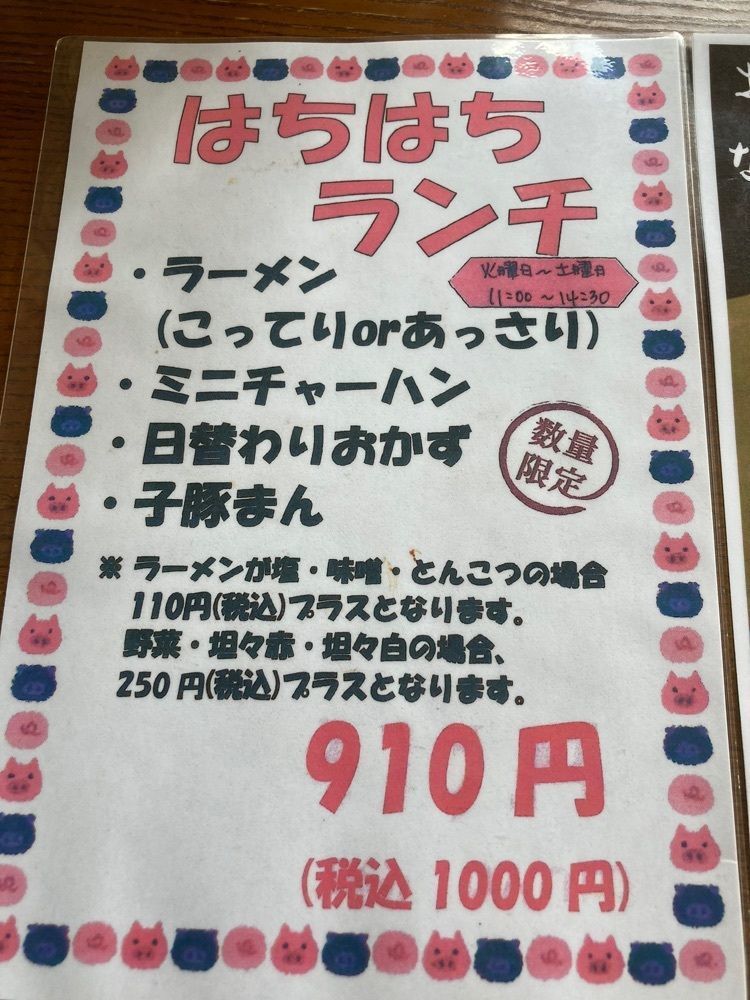 はちはち
ランチ
火曜日～土曜日
11:00～14:30
・ラーメン
(こってりorあっさり)
・ミニチャーハン
・日替わりおかず
・子豚まん
数量
限定
※ ラーメンが塩・味噌・とんこつの場合
110円(税込)プラスとなります。
野菜・坦々赤・坦々白の場合、
250円(税込)プラスとなります。
910円
(税込 1000円)